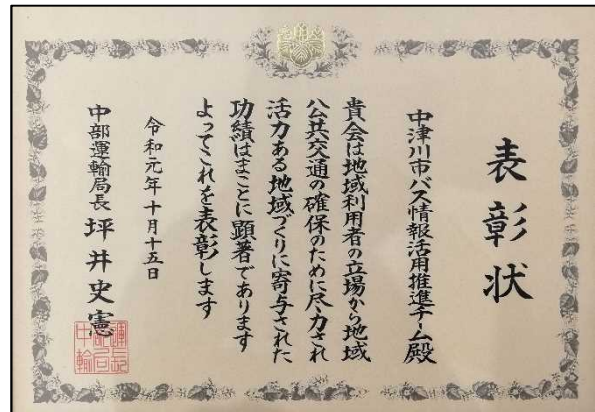 表彰状
中津川市バス情報活用推進チーム殿
貴会は地域利用者の立場から地域
公共交通の確保のために尽力され
活力ある地域づくりに寄与された
功績はまことに顕著であります
よってこれを表彰します
令和元年十月十五日
中部運輸局長 坪井史憲